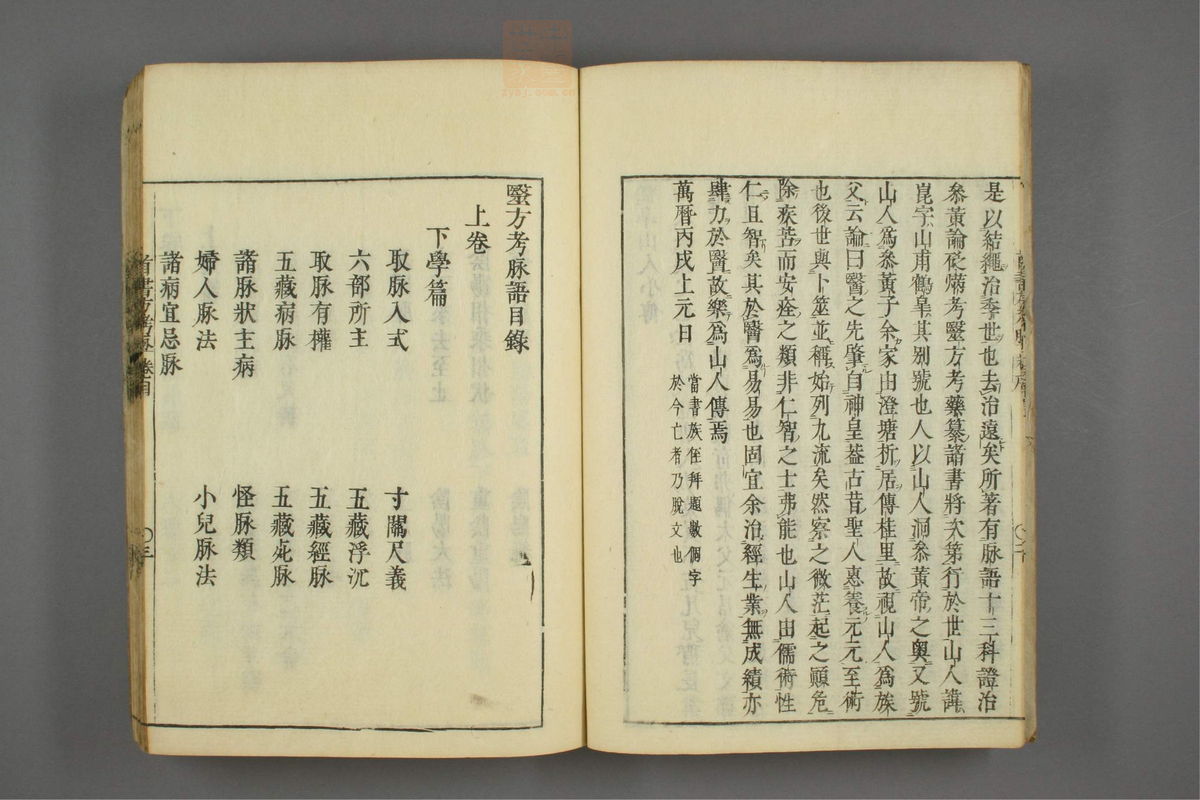 是以結繩治季世也去治遠矣所著有脉語十三科證治
叅黃論砭焫考毉方考藥纂諸書將次第行於世山人諱
崑字山甫鶴皐其别號也人以山人洞叅黃帝之奥又號
山人爲叅黃子余家由澄塘析居傳桂里故視山人爲族
父云論曰醫之先肇自神皇葢古昔聖人惠養元元至術
也後世與卜筮並稱始列九流矣然察之微茫起之顚危
除疾苦而安痊之類非仁智之士弗能也山人由儒術性
仁且智矣其於醫爲易易也固宜余治經生業無成績亦
肆力於醫故樂爲山人傳焉
萬曆丙戌上元日
當書族侄拜題數個字
於今亡者乃脫文也
毉方考脉語目錄
上卷
下學篇
取脉入式
寸關尺義
六部所主
五藏浮沉
取脉有權
五藏經脉
五藏病脉
五藏死脉
諸脉狀主病
怪脉類
婦人脉法
小兒脉法
諸病宜忌脉
卷目
〇三
zysj.com.cn